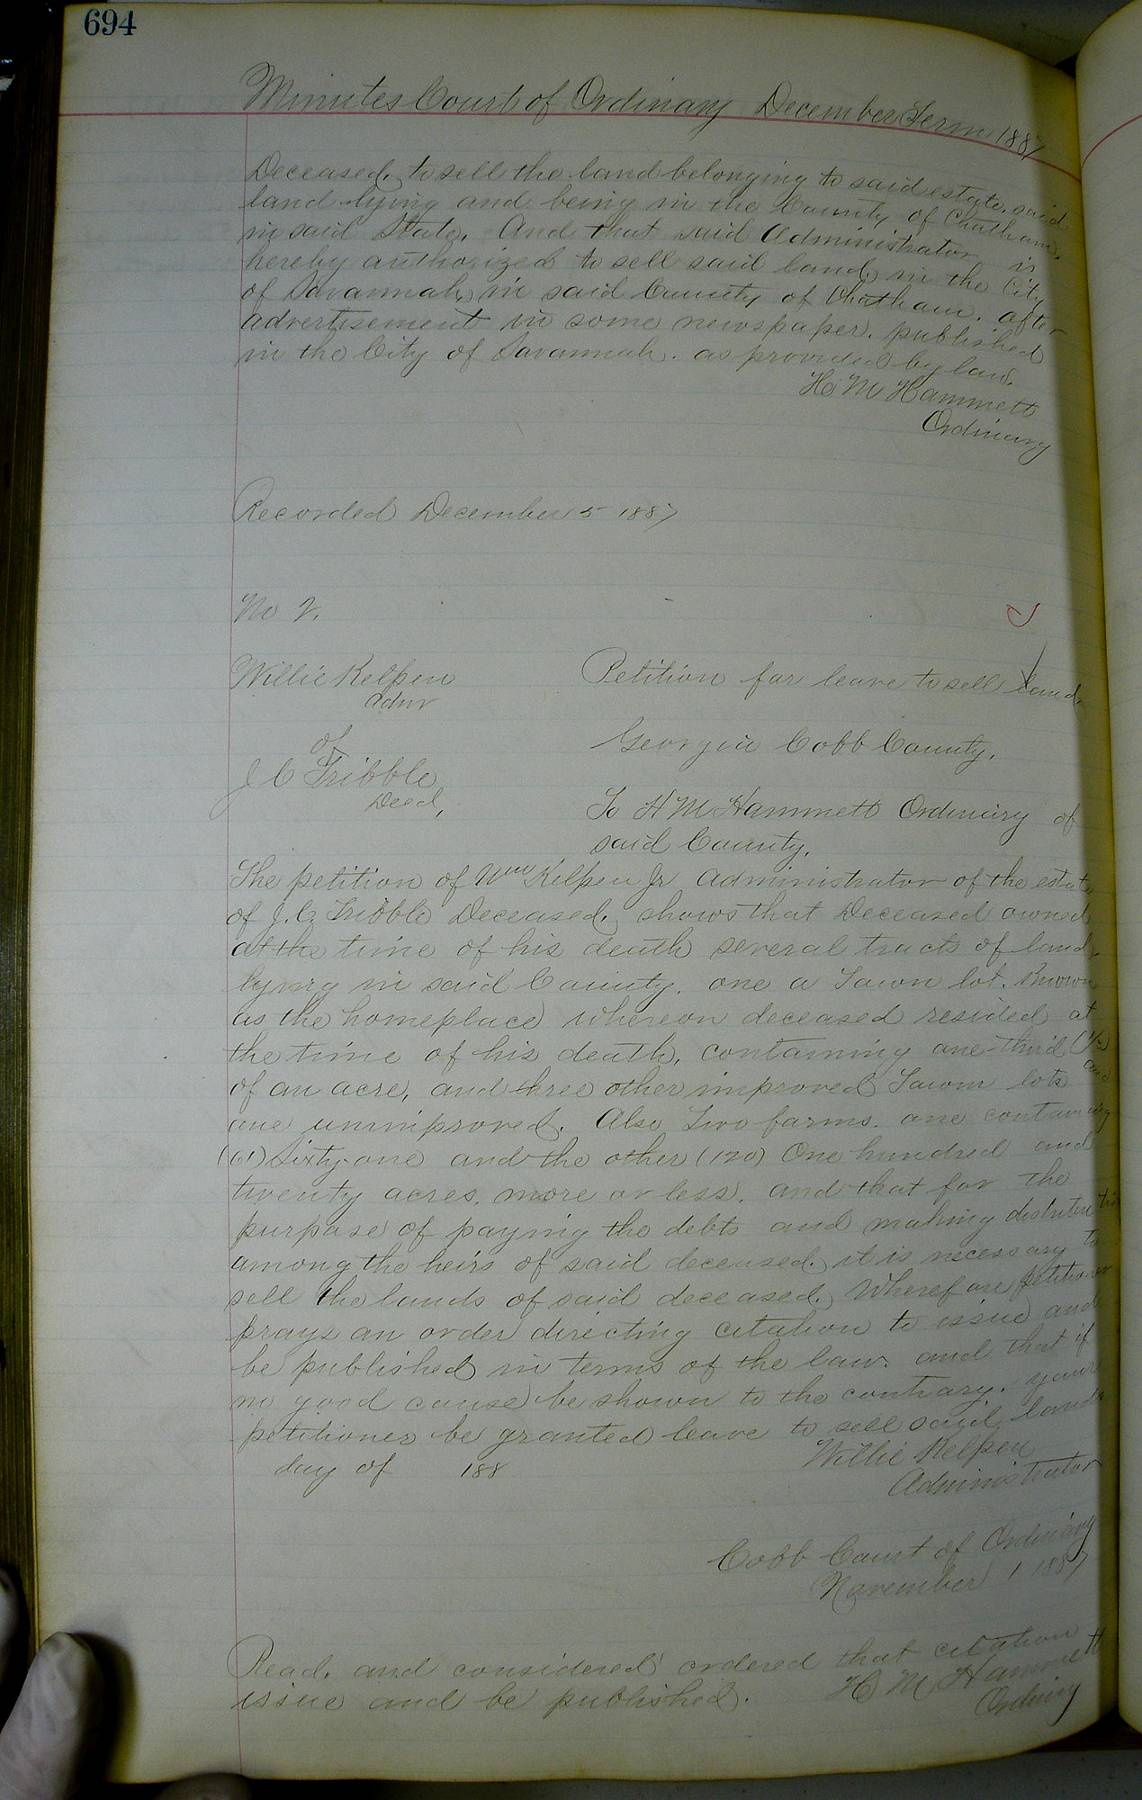 694
Minutes Court of Ordinary December Term 1887
Deceased, to sell the land belonging to said estate. said
land lying and being in the County of Chatham,
in said State. And that said Administrator is
hereby authorized to sell said land in the City
of Savannah, in said County of Chatham. after
advertisement in some newspaper. published
in the City of Savannah. as provided by law.
H M Hammett
Ordinary
Recorded December 5 1887
No 2.
Willie Kelpen
Admr
of
J C Tribble
Deed,
Petition for leave to sell land
Georgia Cobb County,
To H M Hammett Ordinary of
said County.
The petition of Wm Kelpen Jr Administrator of the estate
of J. C. Tribble Deceased, shows that Deceased owned
at the time of his death several tracts of land
lying in said County. one a Town lot. Known
as the homeplace whereon deceased resided at
the time of his death, containing one-third (1/3)
of an acre, and three other improved Town lots and
one unimproved. Also Two farms. one containing
(61) Sixty-one and the other (120) One hundred and
twenty acres. more or less. and that for the
purpose of paying the debts and making distribution
among the heirs of said deceased, it is necessary to
sell the lands of said deceased. Wherefore petitioner
prays an order directing citation to issue and
be published in terms of the law. and that if
no good cause be shown to the contrary. your
petitioner be granted leave to sell said lands
day of 188
Willie Kelpen
Administrator
Cobb Court of Ordinary
November 1 1887
Read, and considered ordered that citation
issue and be published. H M Hammett
Ordinary